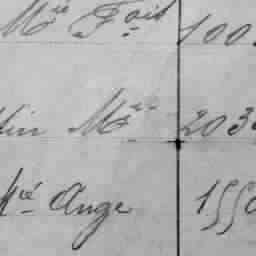 Mie Fois 100
lin Mie 203
Mie Ange 1550